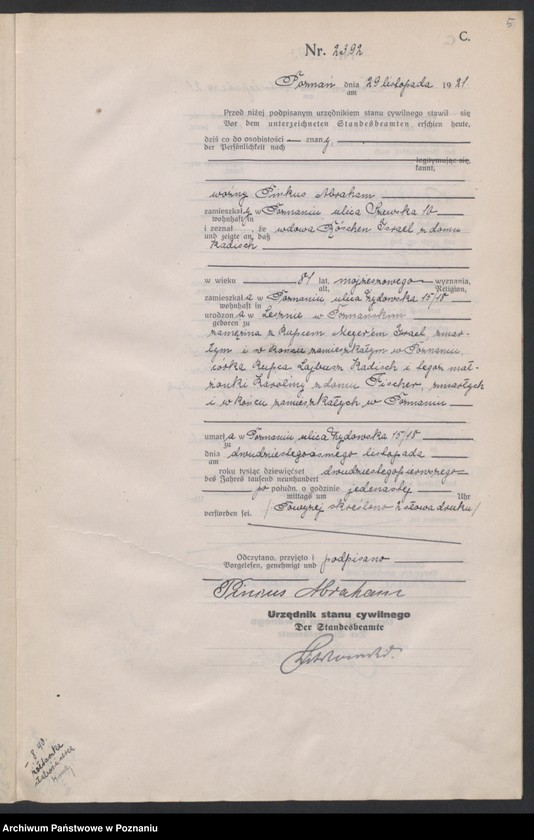 5
C.
Nr. 2392
Poznań dnia 29 listopada 1921
am
Przed niżej podpisanym urzędnikiem stanu cywilnego stawił się
Vor dem unterzeichneten Standesbeamten erschien heute,
dziś co do osobistości — znany
der Persönlichkeit nach
legitymując się,
kannt,
woźny Pinkus Abraham
zamieszkały w Poznaniu ulica Szewska 10
wohnhaft in
i zeznał, że wdowa Röschen Israel z domu
und zeigte an, daß
Kadisch
w wieku 81 lat, mojżeszowego wyznania,
alt, Religion,
zamieszkała w Poznaniu ulica Żydowska 15/18
wohnhaft in
urodzona w Lesznie w Poznańskim
geboren zu
zamężna z kupcem Meyerem Israel, zmar-
łym i w końcu zamieszkałym w Poznaniu,
córka kupca Lajbusz Kadisch i tegoż mał-
żonki Karoliny z domu Fischer, zmarłych
i w końcu zamieszkałych w Poznaniu
umarła w Poznaniu ulica Żydowska 15/18
zu
dnia dwudziestegoósmego listopada
am
roku tysiąc dziewięćset dwudziestegopierwszego
des Jahres tausend neunhundert
po połudn. o godzinie jedenastej
mittags um Uhr
verstorben sei. / Powyżej skreślono 2 słowa druku /
Odczytano, przyjęto i podpisano
Vorgelesen, genehmigt und
Pincus Abraham
Urzędnik stanu cywilnego
Der Standesbeamte
Archiwum Państwowe w Poznaniu